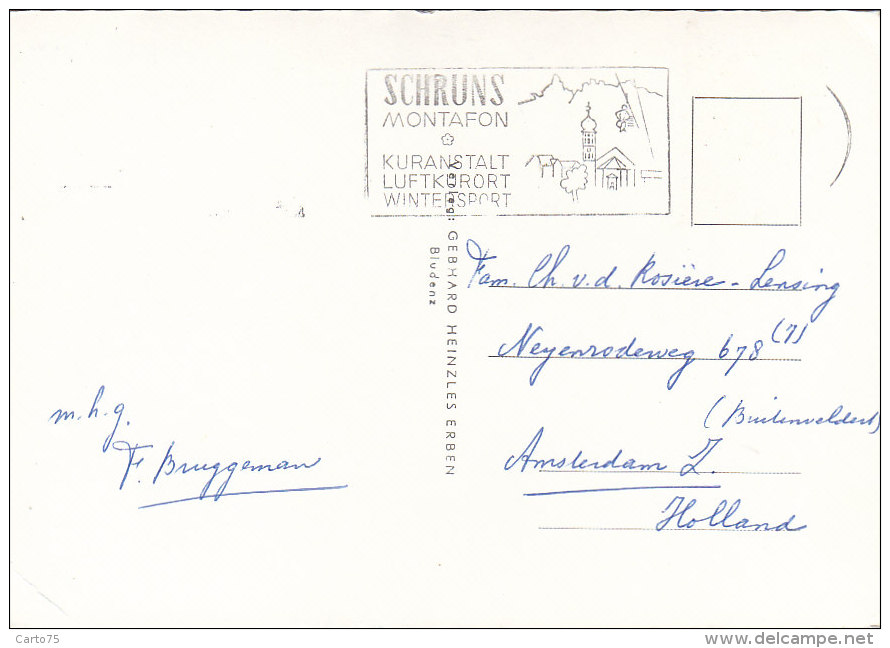 SCHRUNS
MONTAFON
KURANSTALT
LUFTKURORT
WINTERSPORT
Verlag: GEBHARD HEINZLES ERBEN
Bludenz
Fam. Ch. v. d. Rosière - Lensing
Neyenrodeweg 678 (1)
(Buitenveldert)
Amsterdam Z.
Holland
m.h.g.
F. Bruggeman
Carto75
delcampe.net